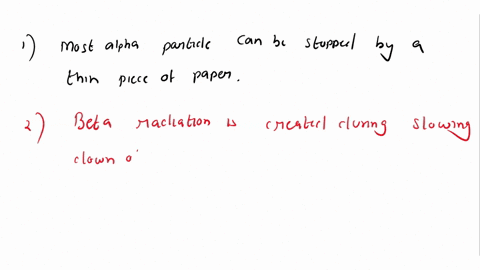 1) Most alpha particle can be stopped by a
thin piece of paper.
2) Beta radiation is created during slowing
down o